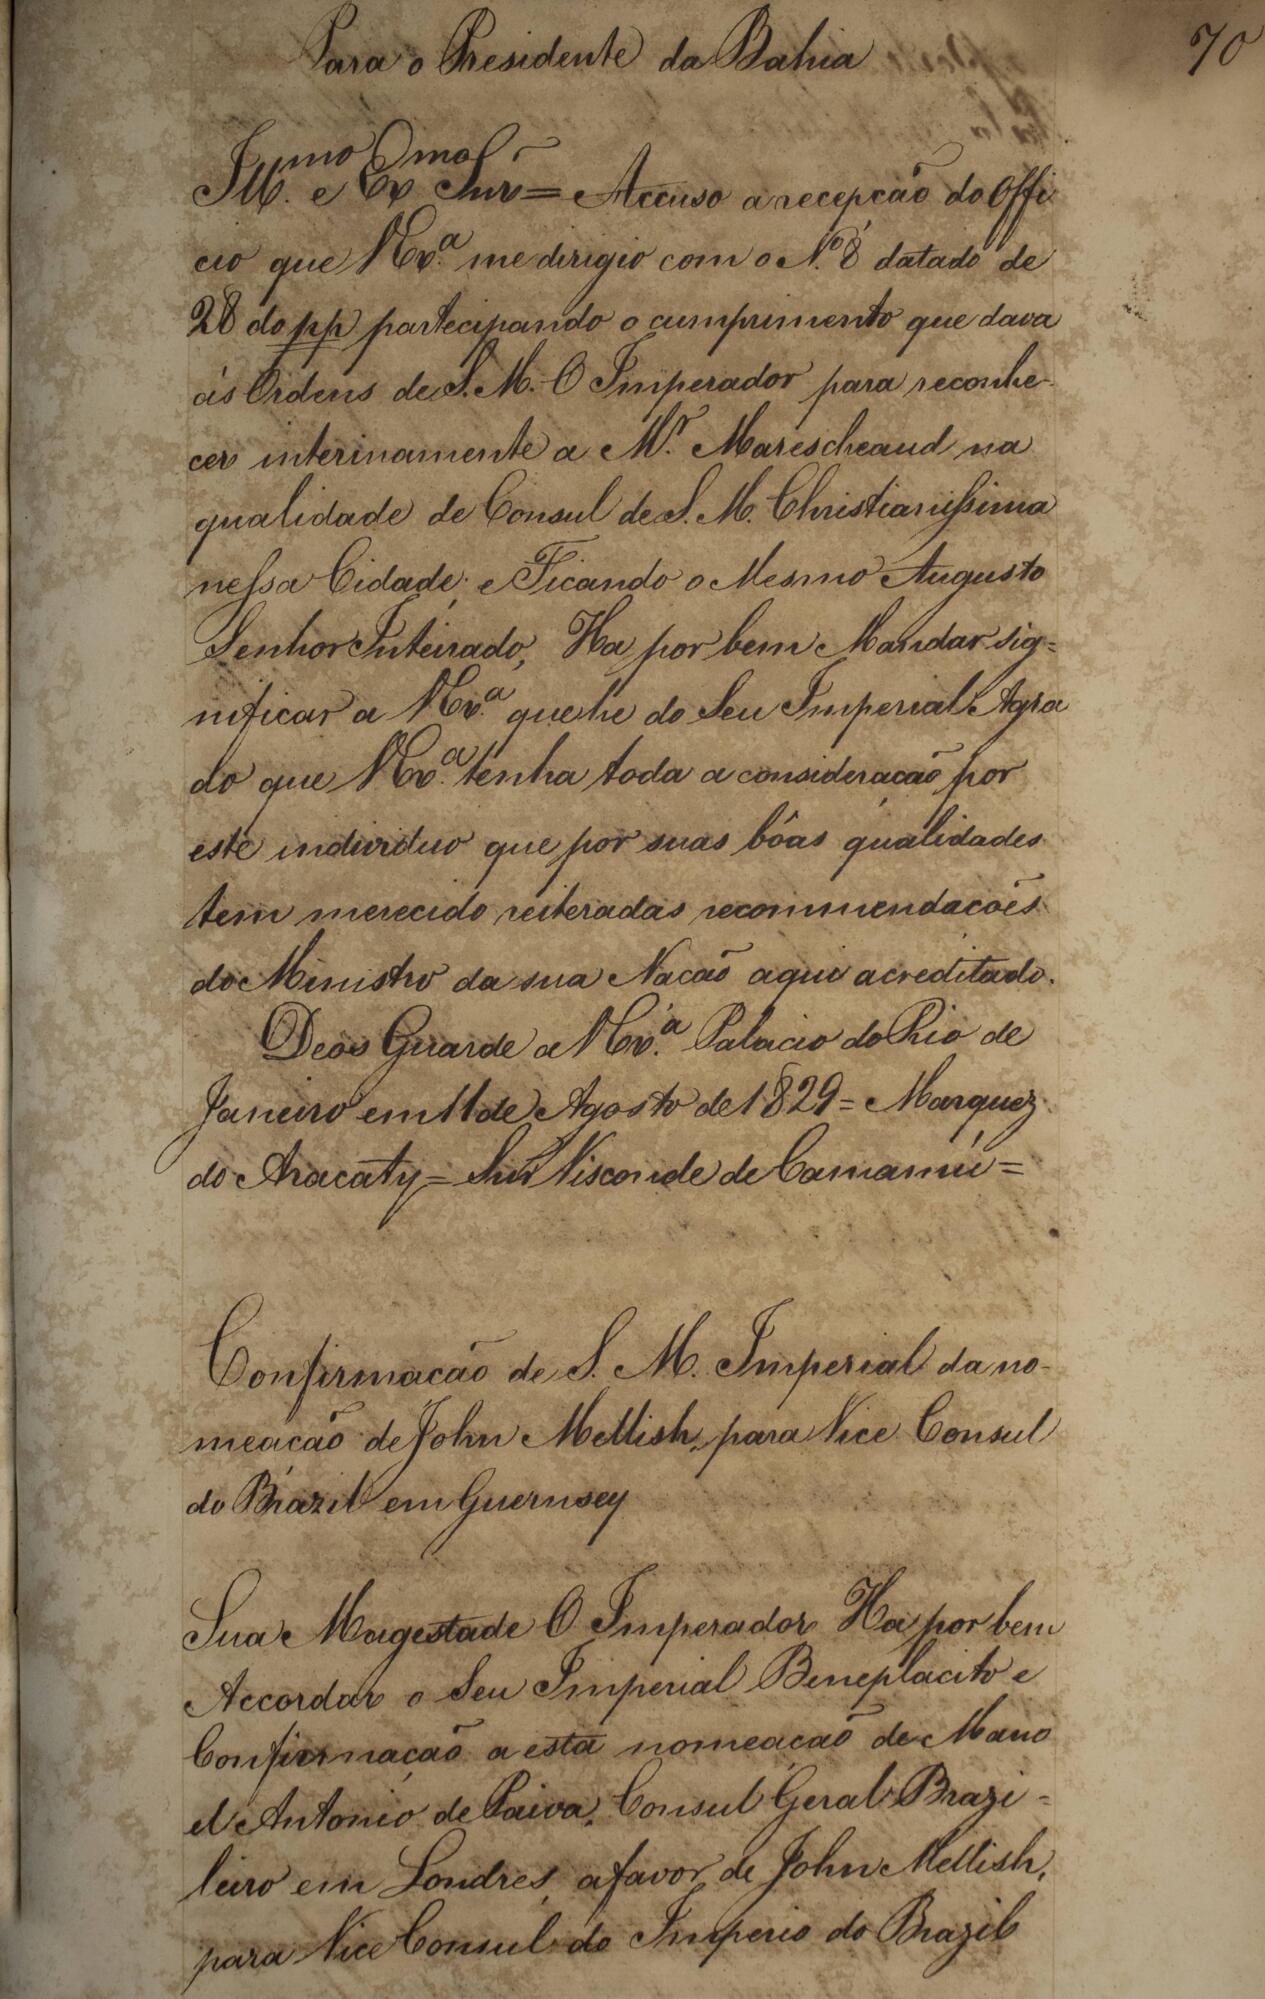 70
Para o Presidente da Bahia
Ill.mo e Ex.mo Snr = Accuso a recepcão do Offi
cio que V Ex.a me dirigio com o N.o 8 datado de
28 do pp partecipando o cumprimento que dava
ás Ordens de S. M. O Imperador para reconhe-
cer interinamente a M.r Marescheaud na
qualidade de Consul de S. M. Christianissima
nessa Cidade; e Ficando o Mesmo Augusto
Senhor Inteirado, Ha por bem Mandar sig=
nificar a V Ex.a que he do Seu Imperial Agra
do que V Ex.a tenha toda a consideração por
este individuo que por suas bôas qualidades
tem merecido reiteradas recommendacões
do Ministro da sua Nacão aqui acreditado.
Deos Guarde a V Ex.a Palacio do Rio de
Janeiro em 11 de Agosto de 1829 = Marquez
do Aracaty = Snr Visconde de Camamú =
Confirmacão de S. M. Imperial da no-
meacão de John Mellish, para Vice Consul
do Brazil em Guernsey
Sua Magestade O Imperador Ha por bem
Accordar o Seu Imperial Beneplacito e
Confirmação a esta nomeação de Mano
el Antonio de Paiva, Consul Geral Brazi=
leiro em Londres, a favor de John Mellish,
para Vice Consul do Imperio do Brazil